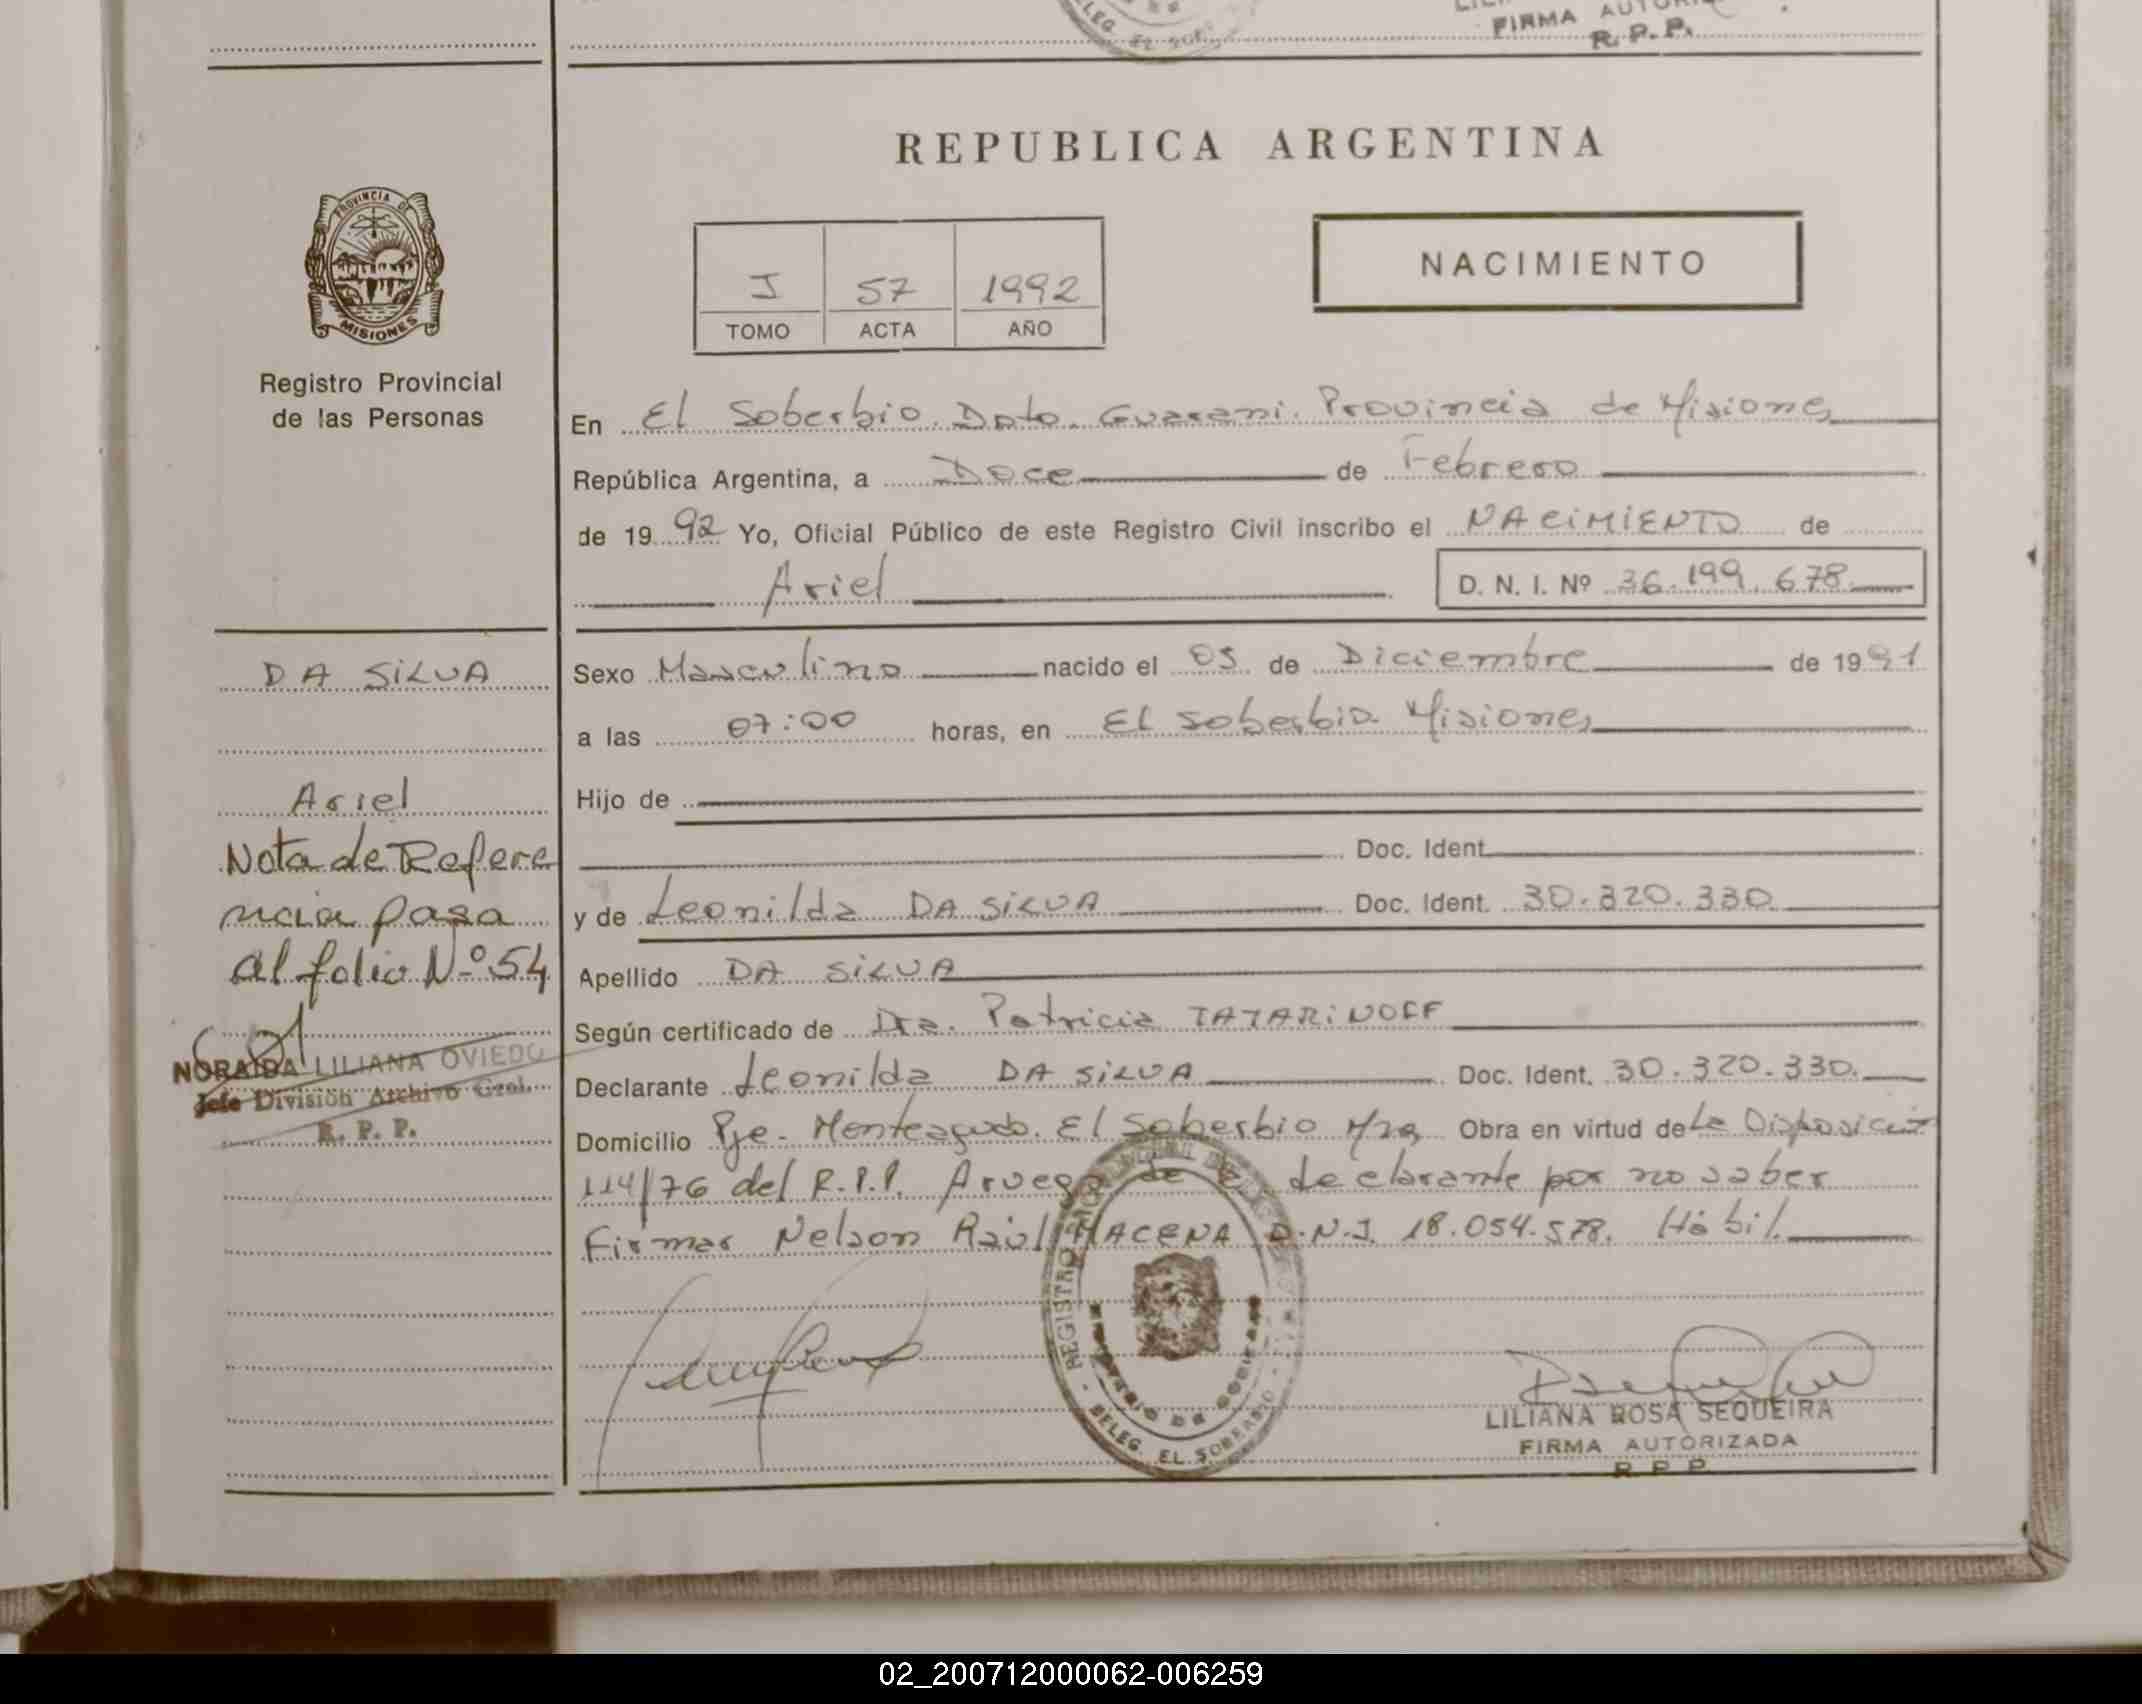 FIRMA AUTORI
R. P. P.
REPUBLICA ARGENTINA
PROVINCIA DE
MISIONES
Registro Provincial
de las Personas
I 57 1992
TOMO ACTA AÑO
NACIMIENTO
En El Soberbio. Dpto. Guarani. Provincia de Misiones
República Argentina, a Doce de Febrero
de 1992 Yo, Oficial Público de este Registro Civil inscribo el NACIMIENTO de
Ariel D. N. I. Nº 36.199.678
DA SILVA
Ariel
Nota de Refere
ncia pasa
al folio Nº 54
NORAIDA LILIANA OVIEDO
Jefe División Archivo Gral.
R. P. P.
Sexo Masculino nacido el 05 de Diciembre de 1991
a las 07:00 horas, en El Soberbio. Misiones
Hijo de
Doc. Ident.
y de Leonilda DA SILVA Doc. Ident. 30.320.330
Apellido DA SILVA
Según certificado de Dra. Patricia TATARINOFF
Declarante Leonilda DA SILVA Doc. Ident. 30.320.330.
Domicilio Pje. Monteagudo. El Soberbio Mnes Obra en virtud de La Disposición
114/76 del R.P.P. A ruego de la declarante por no saber
Firmar Nelson Raúl MACENA D.N.I. 18.054.578. Hábil.
REGISTRO PROVINCIAL DE LAS PERSONAS
MINISTERIO DE GOBIERNO
DELEG. EL SOBERBIO
LILIANA ROSA SEQUEIRA
FIRMA AUTORIZADA
R P P
02_200712000062-006259